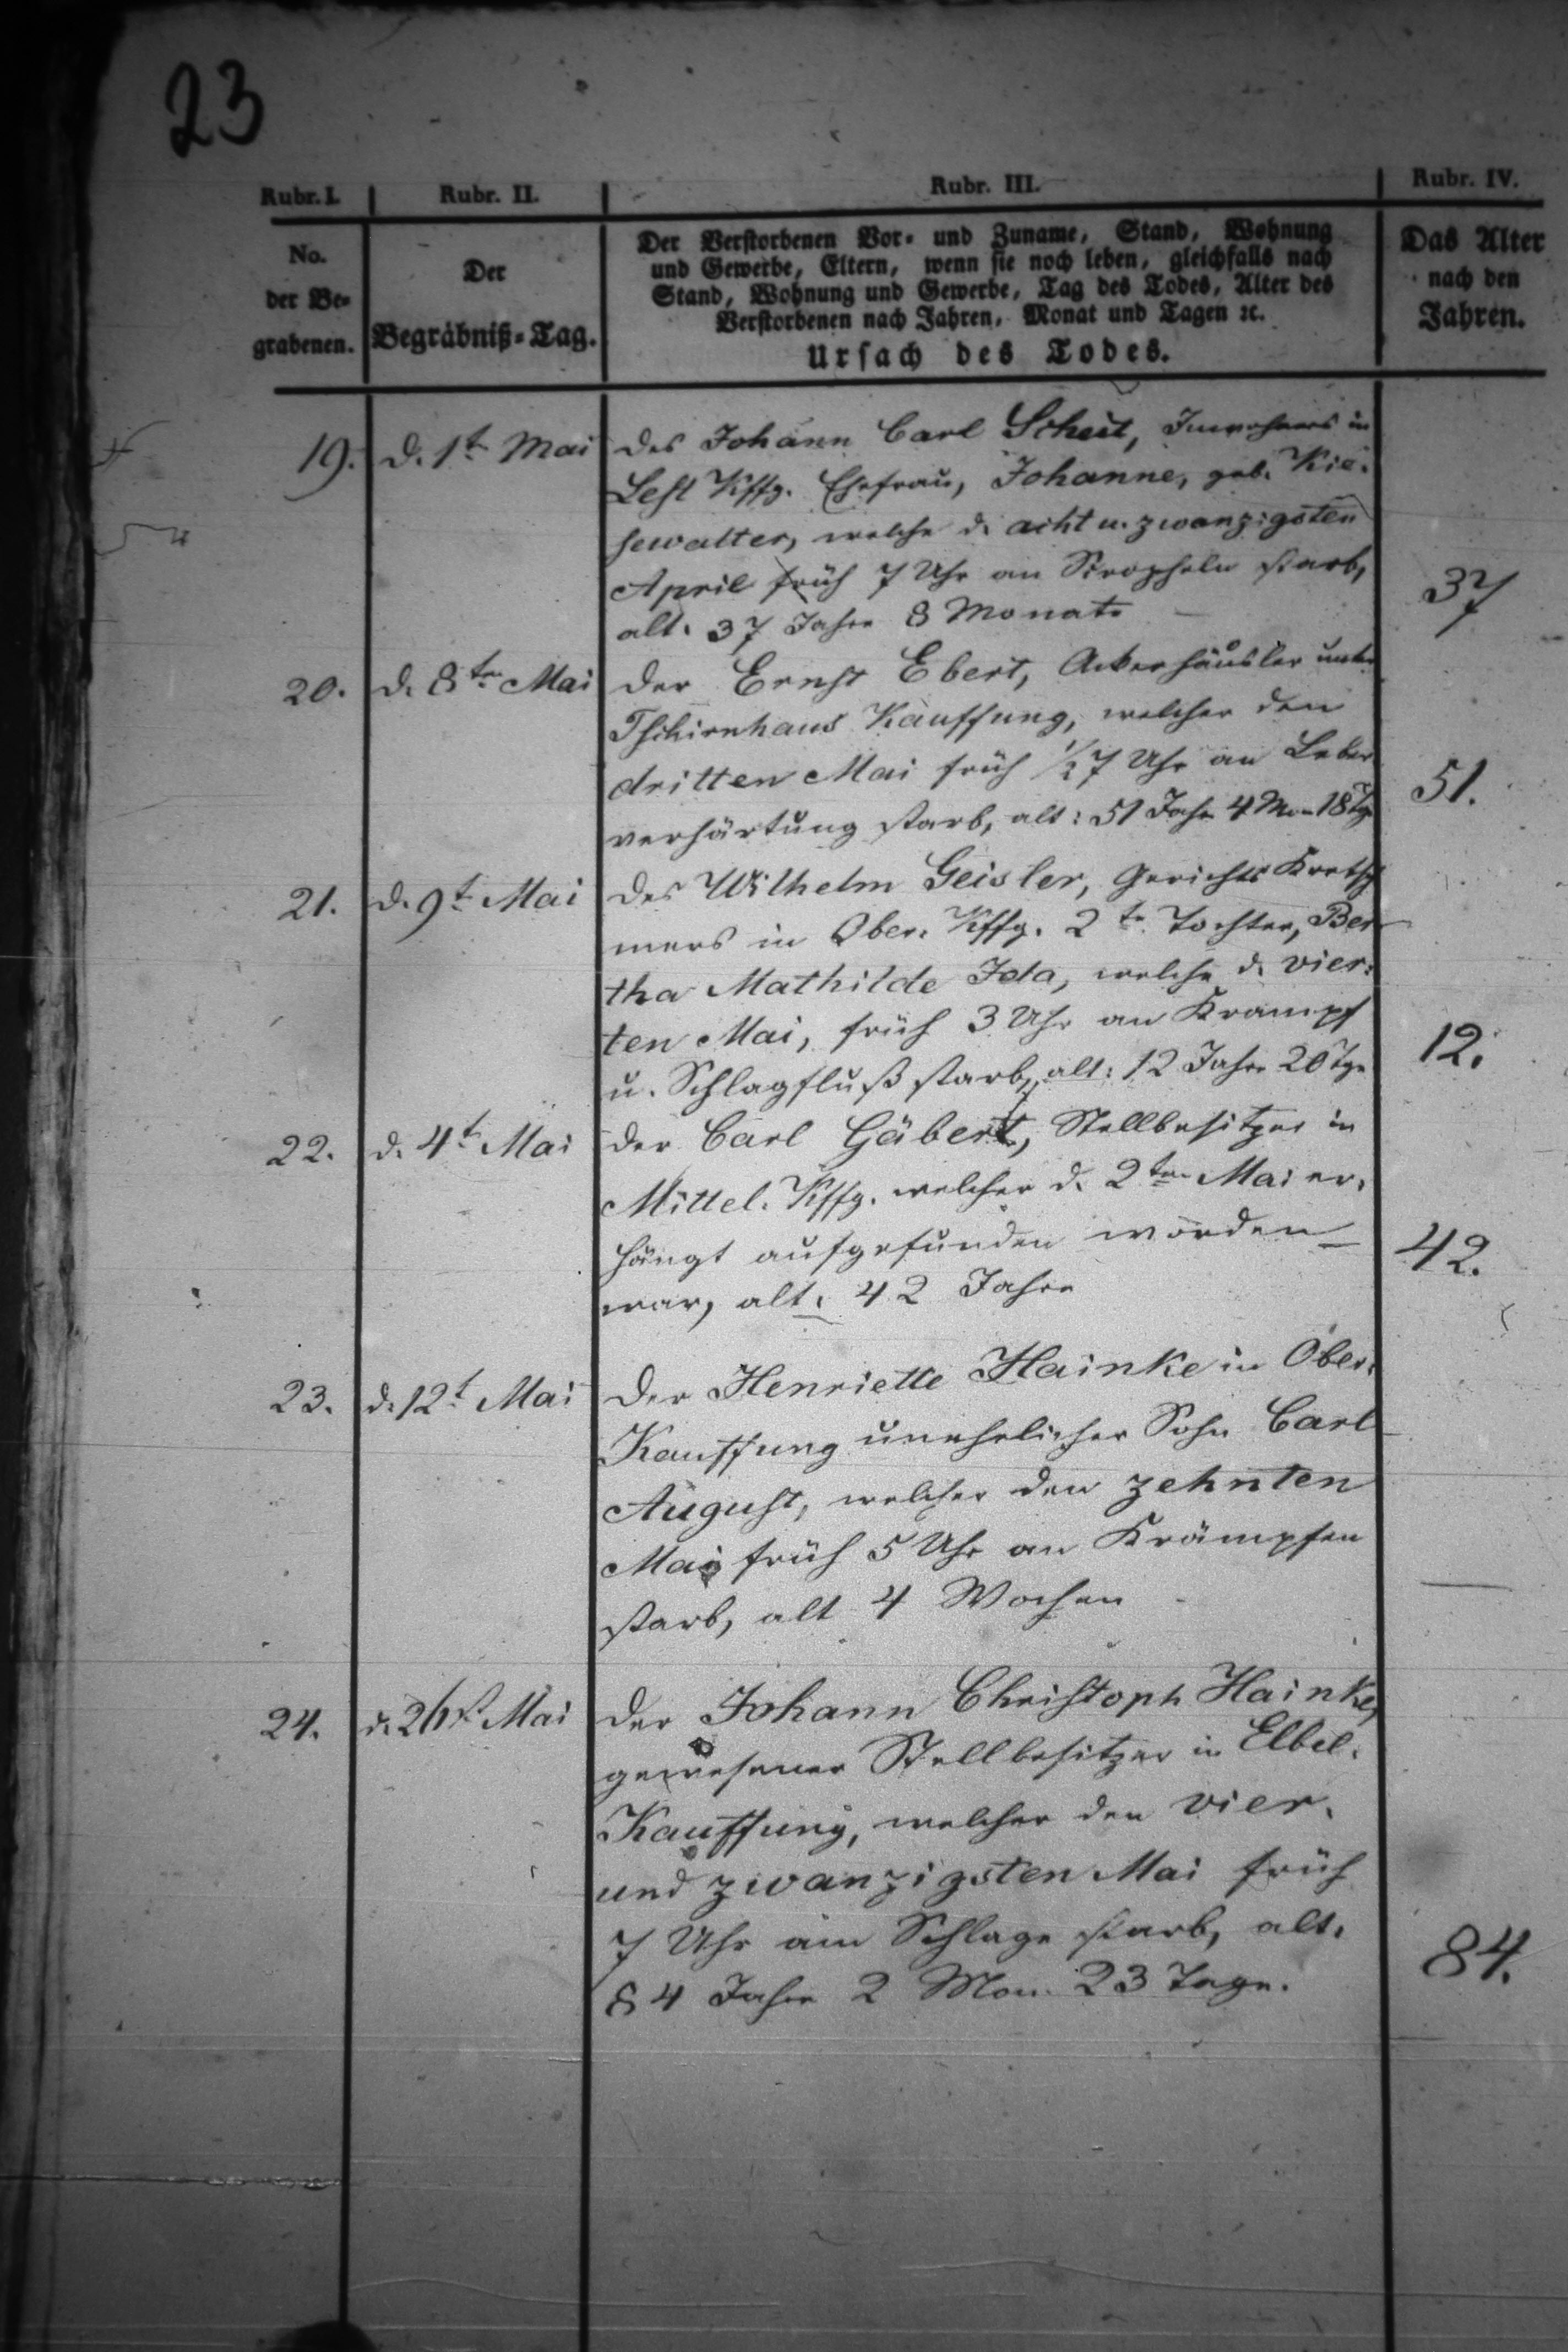 23
Rubr. I. Rubr. II. Rubr. III. Rubr. IV.
No. der Be- grabenen.
Der Begräbniß-Tag.
Der Verstorbenen Vor- und Zuname, Stand, Wohnung
und Gewerbe, Eltern, wenn sie noch leben, gleichfalls nach
Stand, Wohnung und Gewerbe, Tag des Todes, Alter des
Verstorbenen nach Jahren, Monat und Tagen ꝛc.
Ursach des Todes.
Das Alter nach den Jahren.
19. d. 1t Mai des Johann Carl Scheit, Inwohners in
Lest Kffg. Ehefrau, Johanne, geb. Kie-
sewalter, welche d. acht u. zwanzigsten
April früh 7 Uhr an Skropheln starb,
alt. 37 Jahre 8 Monate 37
20. d. 8ten Mai der Ernst Ebert, Ackerhäusler unter
Tschirnhaus Kauffung, welcher den
dritten Mai früh 1/2 7 Uhr an Leber
verhärtung starb, alt: 51 Jahr 4 Mon 18 Tg. 51.
21. d. 9t Mai des Wilhelm Geisler, Gerichts Kretsch
mers in Ober. Kffg. 2te Tochter, Ber
tha Mathilde Ida, welche d. vier-
ten Mai, früh 3 Uhr an Krampf
u. Schlagfluß starb, alt: 12 Jahre 20 Tge 12.
22. d. 4t Mai der Carl Gäbert, Stellbesitzer in
Mittel. Kffg. welcher d. 2ten Mai er-
hängt aufgefunden worden
war, alt. 42 Jahre 42.
23. d. 12t Mai Der Henriette Hainke in Ober-
Kauffung unehelicher Sohn Carl
August, welcher den zehnten
Mai früh 5 Uhr an Krämpfen
starb, alt 4 Wochen
24. d. 26st Mai der Johann Christoph Hainke,
gewesener Stellbesitzer in Elbel-
Kauffung, welcher den vier-
und zwanzigsten Mai früh
7 Uhr am Schlage starb, alt.
84 Jahre 2 Mon. 23 Tage. 84.